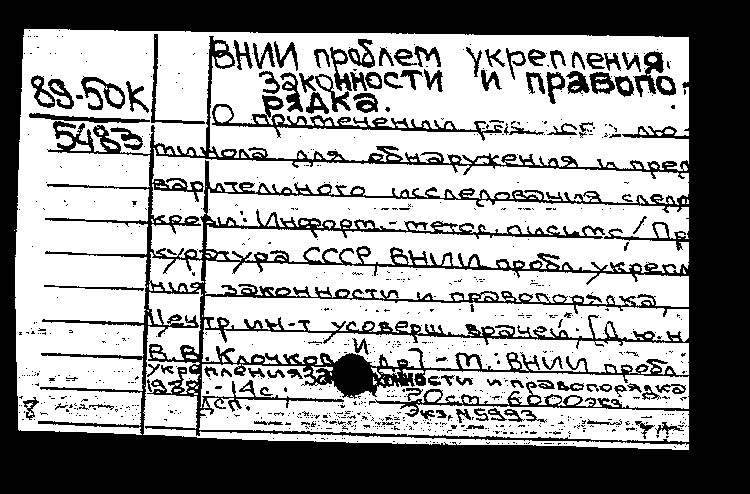 ВНИИ проблем укрепления
законности и правопо-
рядка.
89-50К
5483
О применении лю-
минола для обнаружения и пред
варительного исследования след
крови: Информ.-метод. письмо / Пр
куратура СССР, ВНИИ пробл. укрепл
ния законности и правопорядка,
Центр. ин-т усоверш. врачей; [Д.ю.н.
В.В. Клочков и др] - М.: ВНИИ пробл
укрепления законности и правопорядка
1988. - 14с.; 20см. - 6000экз.
Дсп. Экз.N5993
8